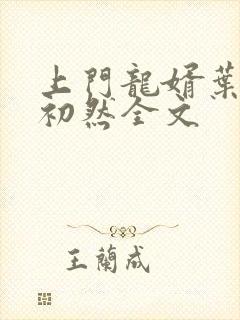 上門龍婿葉
初然全文
王蘭成